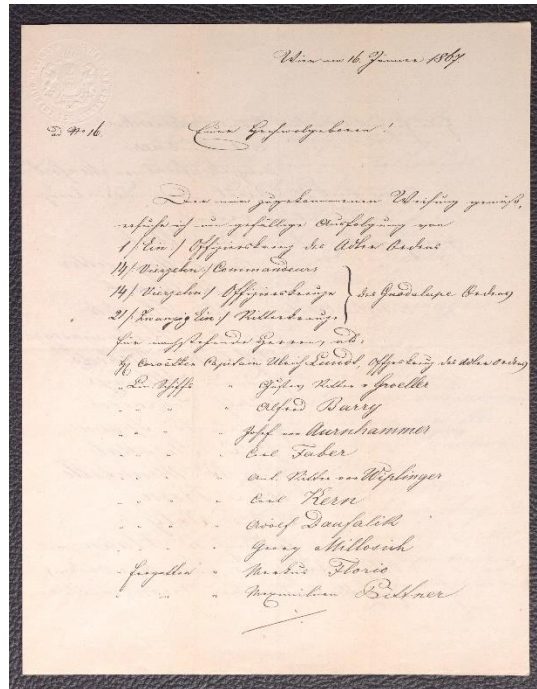 Wien am 16. Jänner 1867.
ad No 16.
Euer Hochwolgeboren!
Der mir zugekommenen Weisung gemäß,
ersuche ich um gefällige Ausfolgung von
1/: Ein :/ Offizierskreuz des Adler Ordens
14/: Vierzehn :/ Commandeurs
14/: Vierzehn :/ Offizierskreuze } des Guadalupe Ordens
21/: Zwanzig Ein :/ Ritterkreuze
für nachstehende Herren, als:
Corvetten Capitain Ulrich Lundt, Offzrskreuz des Adler Ordens
" Lin. Schiffs " Gustav Ritter v Groeller
" " " Alfred Barry
" " " Josef von Aurnhammer
" " " Carl Faber
" " " Ant. Ritter von Wiplinger
" " " Carl Kern
" " " Adolf Daufalik
" " " Georg Millosich
" Fregatten " Markus Florio
" " " Maximilian Pittner